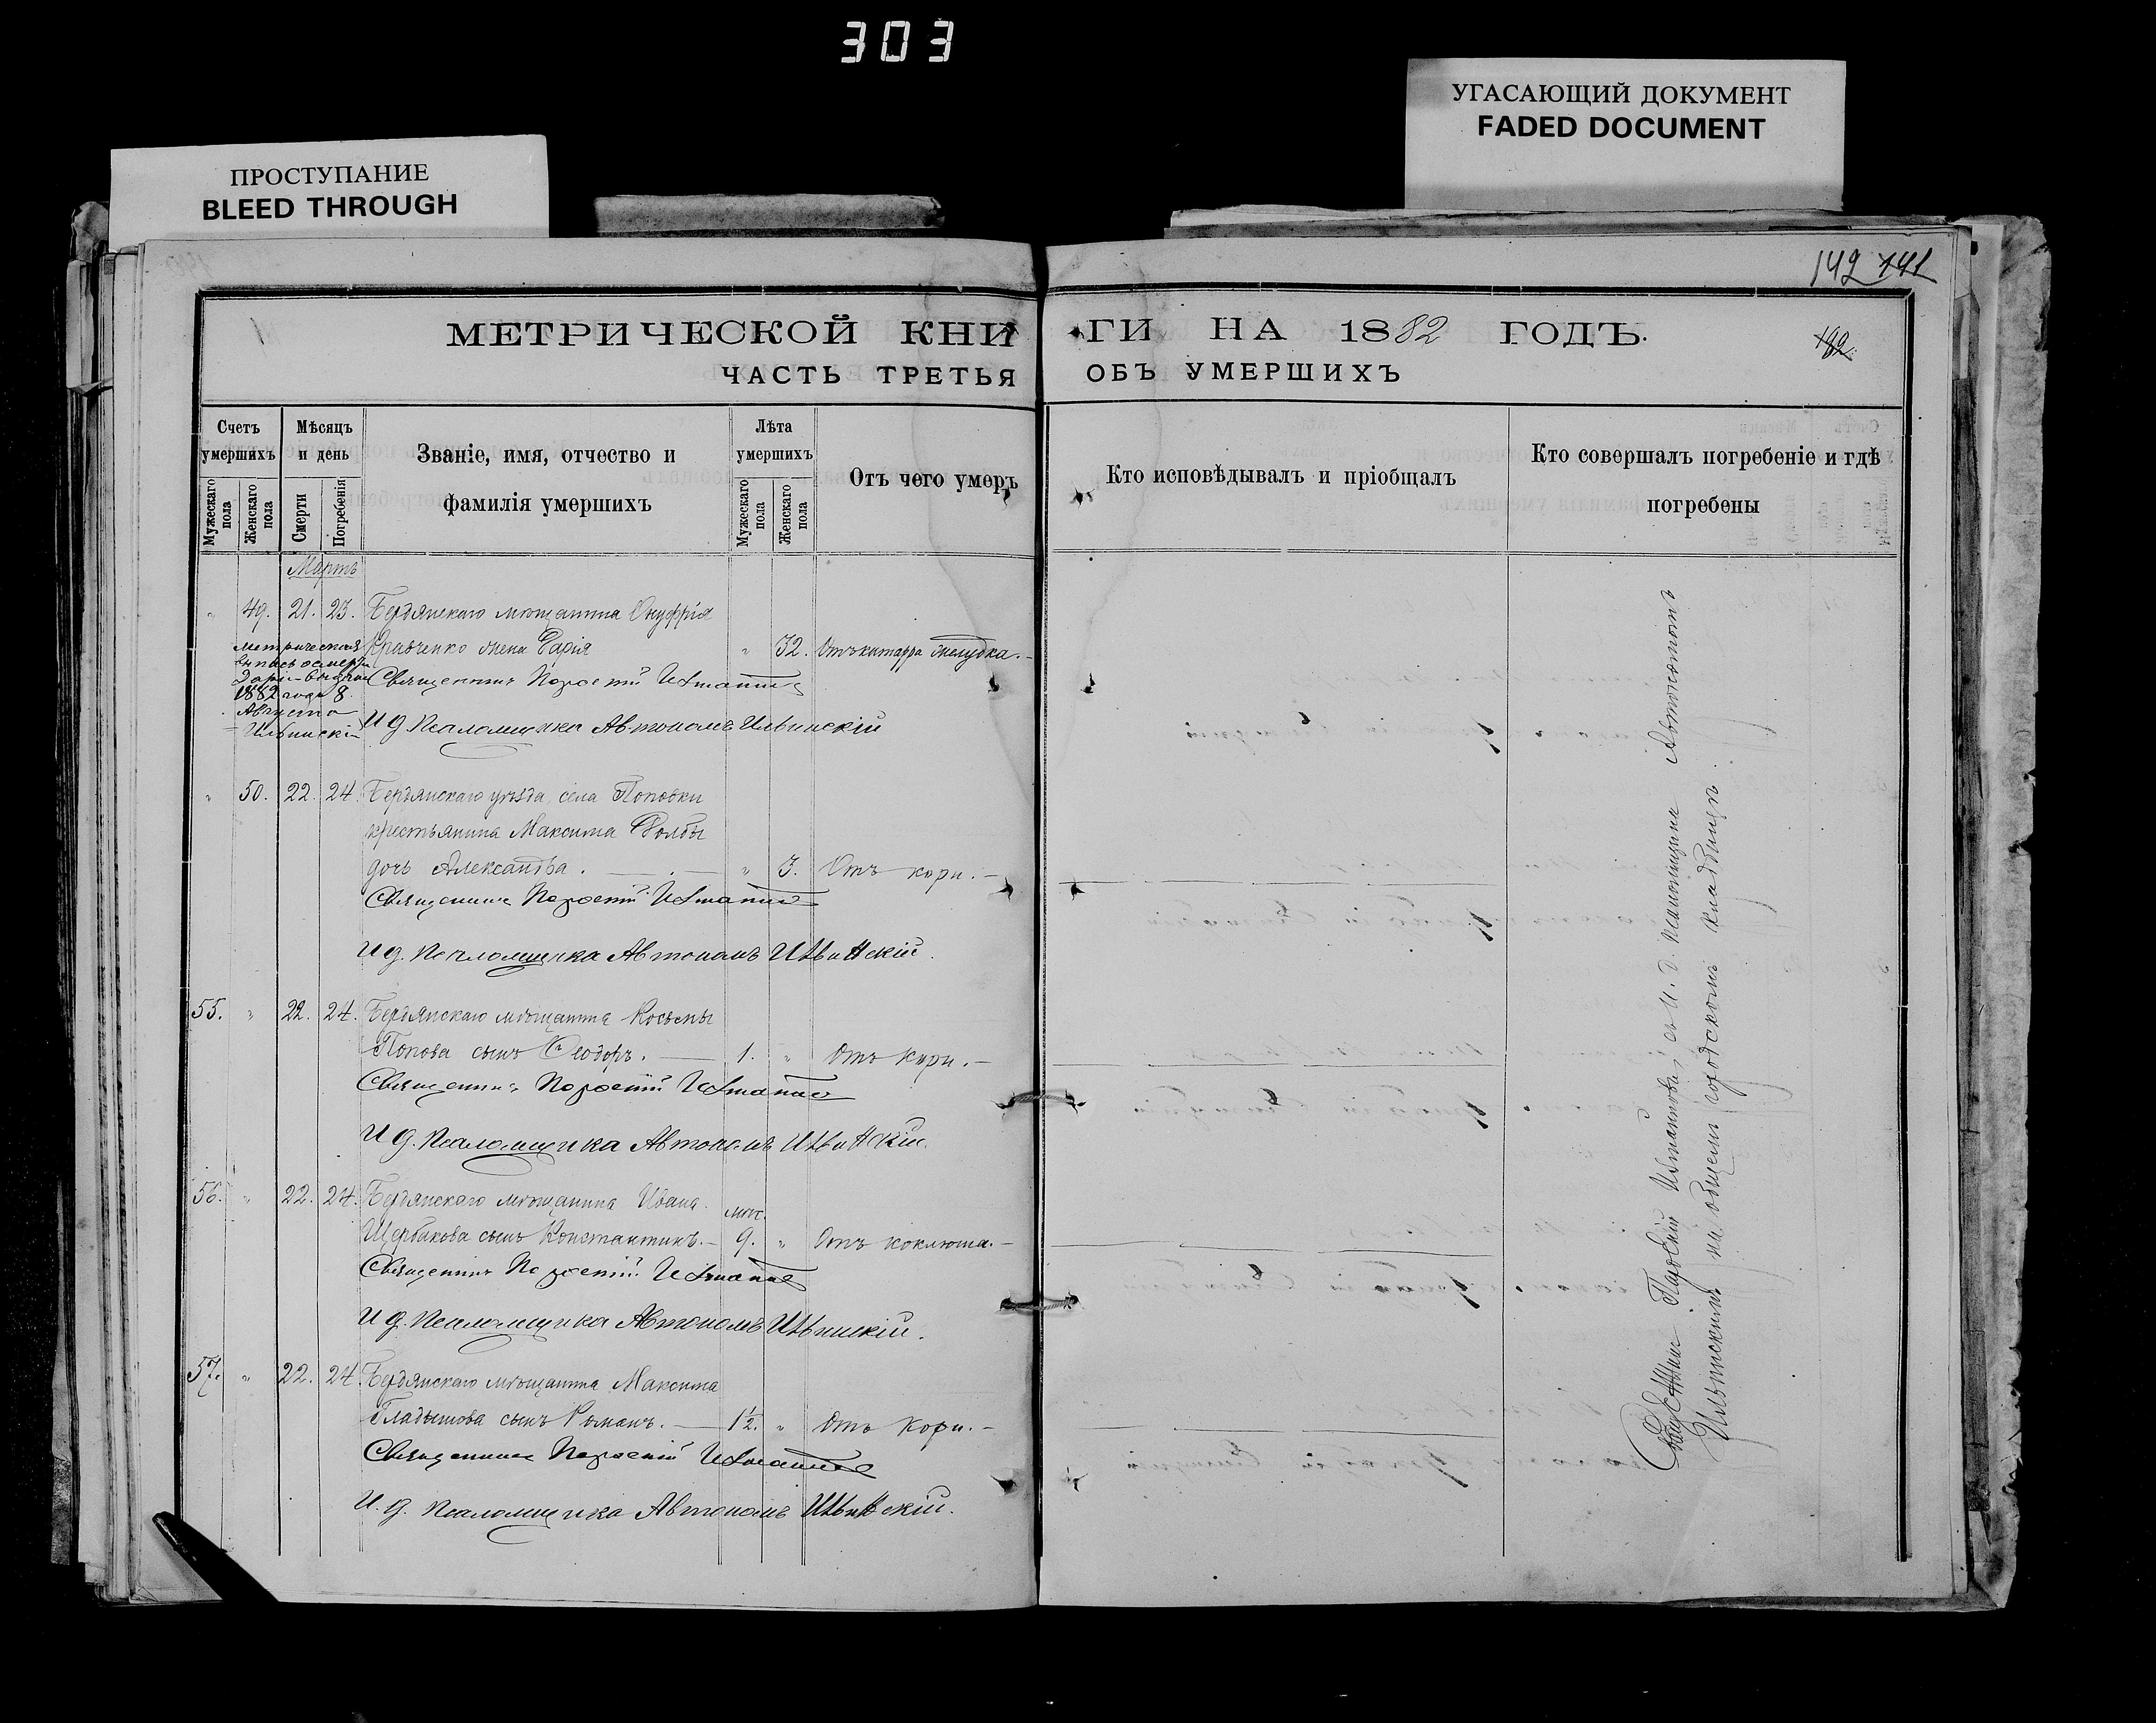 303
УГАСАЮЩИЙ ДОКУМЕНТ
FADED DOCUMENT
ПРОСТУПАНИЕ
BLEED THROUGH
142 141
МЕТРИЧЕСКОЙ КНИ
ГИ НА 1882 ГОДЪ.
ЧАСТЬ ТРЕТЬЯ
ОБЪ УМЕРШИХЪ
Счетъ умершихъ
Мужескаго пола
Женскаго пола
Мѣсяцъ и день
Смерти
Погребенія
Званіе, имя, отчество и
фамилія умершихъ
Лѣта умершихъ
Мужескаго пола
Женскаго пола
Отъ чего умеръ
Кто исповѣдывалъ и пріобщалъ
Кто совершалъ погребеніе и гдѣ
погребены
Мартъ
" 49. 21. 23. Бердянскаго мѣщанина Онуфрія
Кравченко жена Дарія " 32. Отъ катарра желудка.
метрическая
выпись о смерти
Даріи выдана
1882 года 8
Августа
Ильинскій
Священникъ
И д. Псаломщика Автономъ Ильинскій
" 50. 22. 24. Бердянскаго уѣзда, села Поповки
крестьянина Максима
дочь Александра. " 3. Отъ кори.
Священникъ
И д. Псаломщика Автономъ Ильинскій.
55. " 22. 24. Бердянскаго мѣщанина Косьмы
Попова сынъ Ѳеодоръ. 1. " Отъ кори.
Священникъ
И д. Псаломщика Автономъ Ильинскій.
56. " 22. 24. Бердянскаго мѣщанина Ивана
Щербакова сынъ Константинъ. 9. мѣс. " Отъ коклюша.
Священникъ
И д. Псаломщика Автономъ Ильинскій.
57. " 22. 24. Бердянскаго мѣщанина Максима
Гладышова сынъ Романъ. 1½. " Отъ кори.
Священникъ
И. д. Псаломщика Автономъ Ильинскій.
Священникъ съ И. д. псаломщика Автономомъ
Ильинскимъ на общемъ городскомъ кладбищѣ.